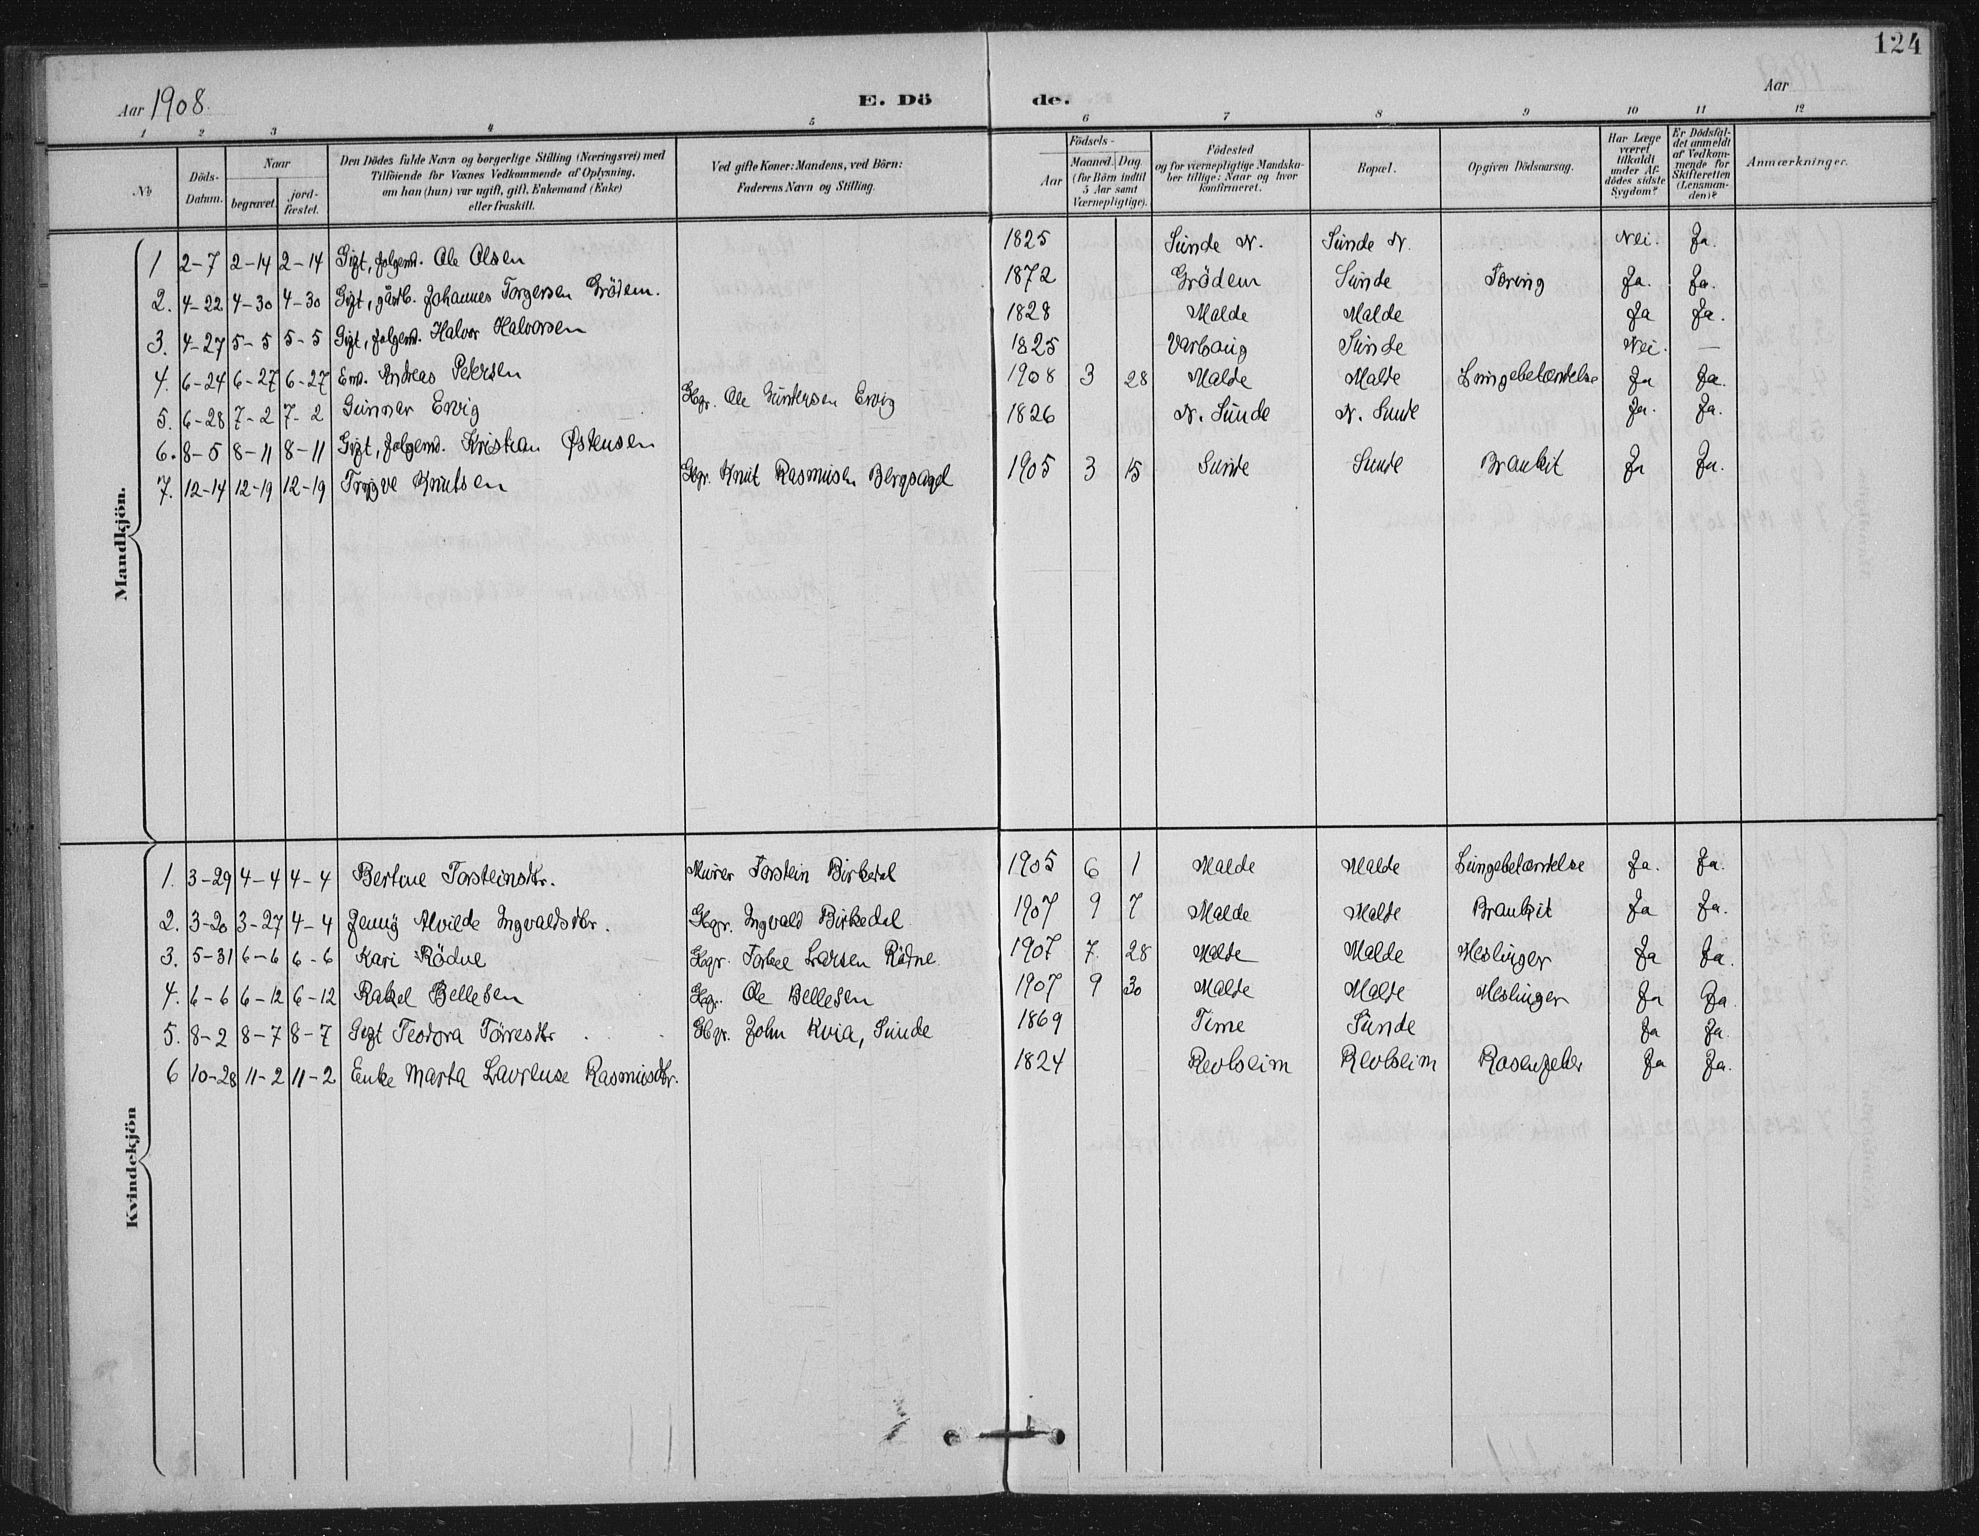 124
Aar 1908 E. Dö de. Aar
1 2 3 4 5 6 7 8 9 10 11 12
№ Döds-Datum. Naar begravet. jordfæstet. Den Dödes fulde Navn og borgerlige Stilling (Næringsvei) med Tilföiende for Voxnes Vedkommende af Oplysning, om han (hun) var ugift, gift, Enkemand (Enke) eller fraskilt. Ved gifte Koner: Mandens, ved Börn: Faderens Navn og Stilling. Födsels- Aar Maaned. Dag. (for Börn indtil 5 Aar samt Værnepligtige). Födested og for værnepligtige Mandskaber tillige: Naar og hvor konfirmeret. Bopæl. Opgiven Dödsaarsag. Har Læge været tilkaldt under Afdödes sidste Sygdom? Er Dödsfaldet anmeldt af Vedkommende for Skifteretten (Lensmanden)? Anmærkninger.
Mandkjön.
1 2-7 2-14 2-14 Gift, folgem. Ole Olsen 1825 Sunde N. Sunde N. Nei. Ja.
2. 4-22 4-30 4-30 Gift, gårdb. Johannes Torgersen Grödem. 1872 Grödem Sunde Tæring Ja. Ja.
3. 4-27 5-5 5-5 Gift, folgem. Halvor Halvorsen 1828 Malde Malde Ja Ja.
4. 6-24 6-27 6-27 Em. Andreas Petersen 1825 Varhaug Sunde Nei. —
5. 6-28 7-2 7-2 Gunnar Ervig Gbgr. Ole Guntersen Ervig 1908 3 28 Malde Malde Lungebetændelse Ja Ja.
6. 8-5 8-11 8-11 Gift, folgem. Kristian Østensen 1826 N. Sunde N. Sunde Ja. Ja.
7. 12-14 12-19 12-19 Trygve Knutsen Gbgr. Knut Rasmusen Bergsagel 1905 3 15 Sunde Sunde Brankit Ja Ja.
Kvindekjön
1. 3-29 4-4 4-4 Bertine Torsteinsdtr. Murer Torstein Birkedal 1905 6 1 Malde Malde Lungebetændelse Ja. Ja.
2. 3-20 3-27 4-4 Jenny Alvilde Ingvaldsdtr. Gbgr. Ingvald Birkedal 1907 9 7 Malde Malde Brankit Ja Ja.
3. 5-31 6-6 6-6 Kari Rödne Gbgr. Torkel Larsen Rödne 1907 7. 28 Malde Malde Meslinger Ja Ja.
4. 6-6 6-12 6-12 Rakel Bellesen Gbgr. Ole Bellesen 1907 9 30 Malde Malde Meslinger Ja Ja.
5. 8-2 8-7 8-7 Gift Teodora Törresdtr Gbgr. John Kvia, Sunde 1869 Time Sunde Ja Ja.
6 10-28 11-2 11-2 Enke Marta Lavrense Rasmusdtr. 1824 Revheim Revheim Rosenfeber Ja Ja.